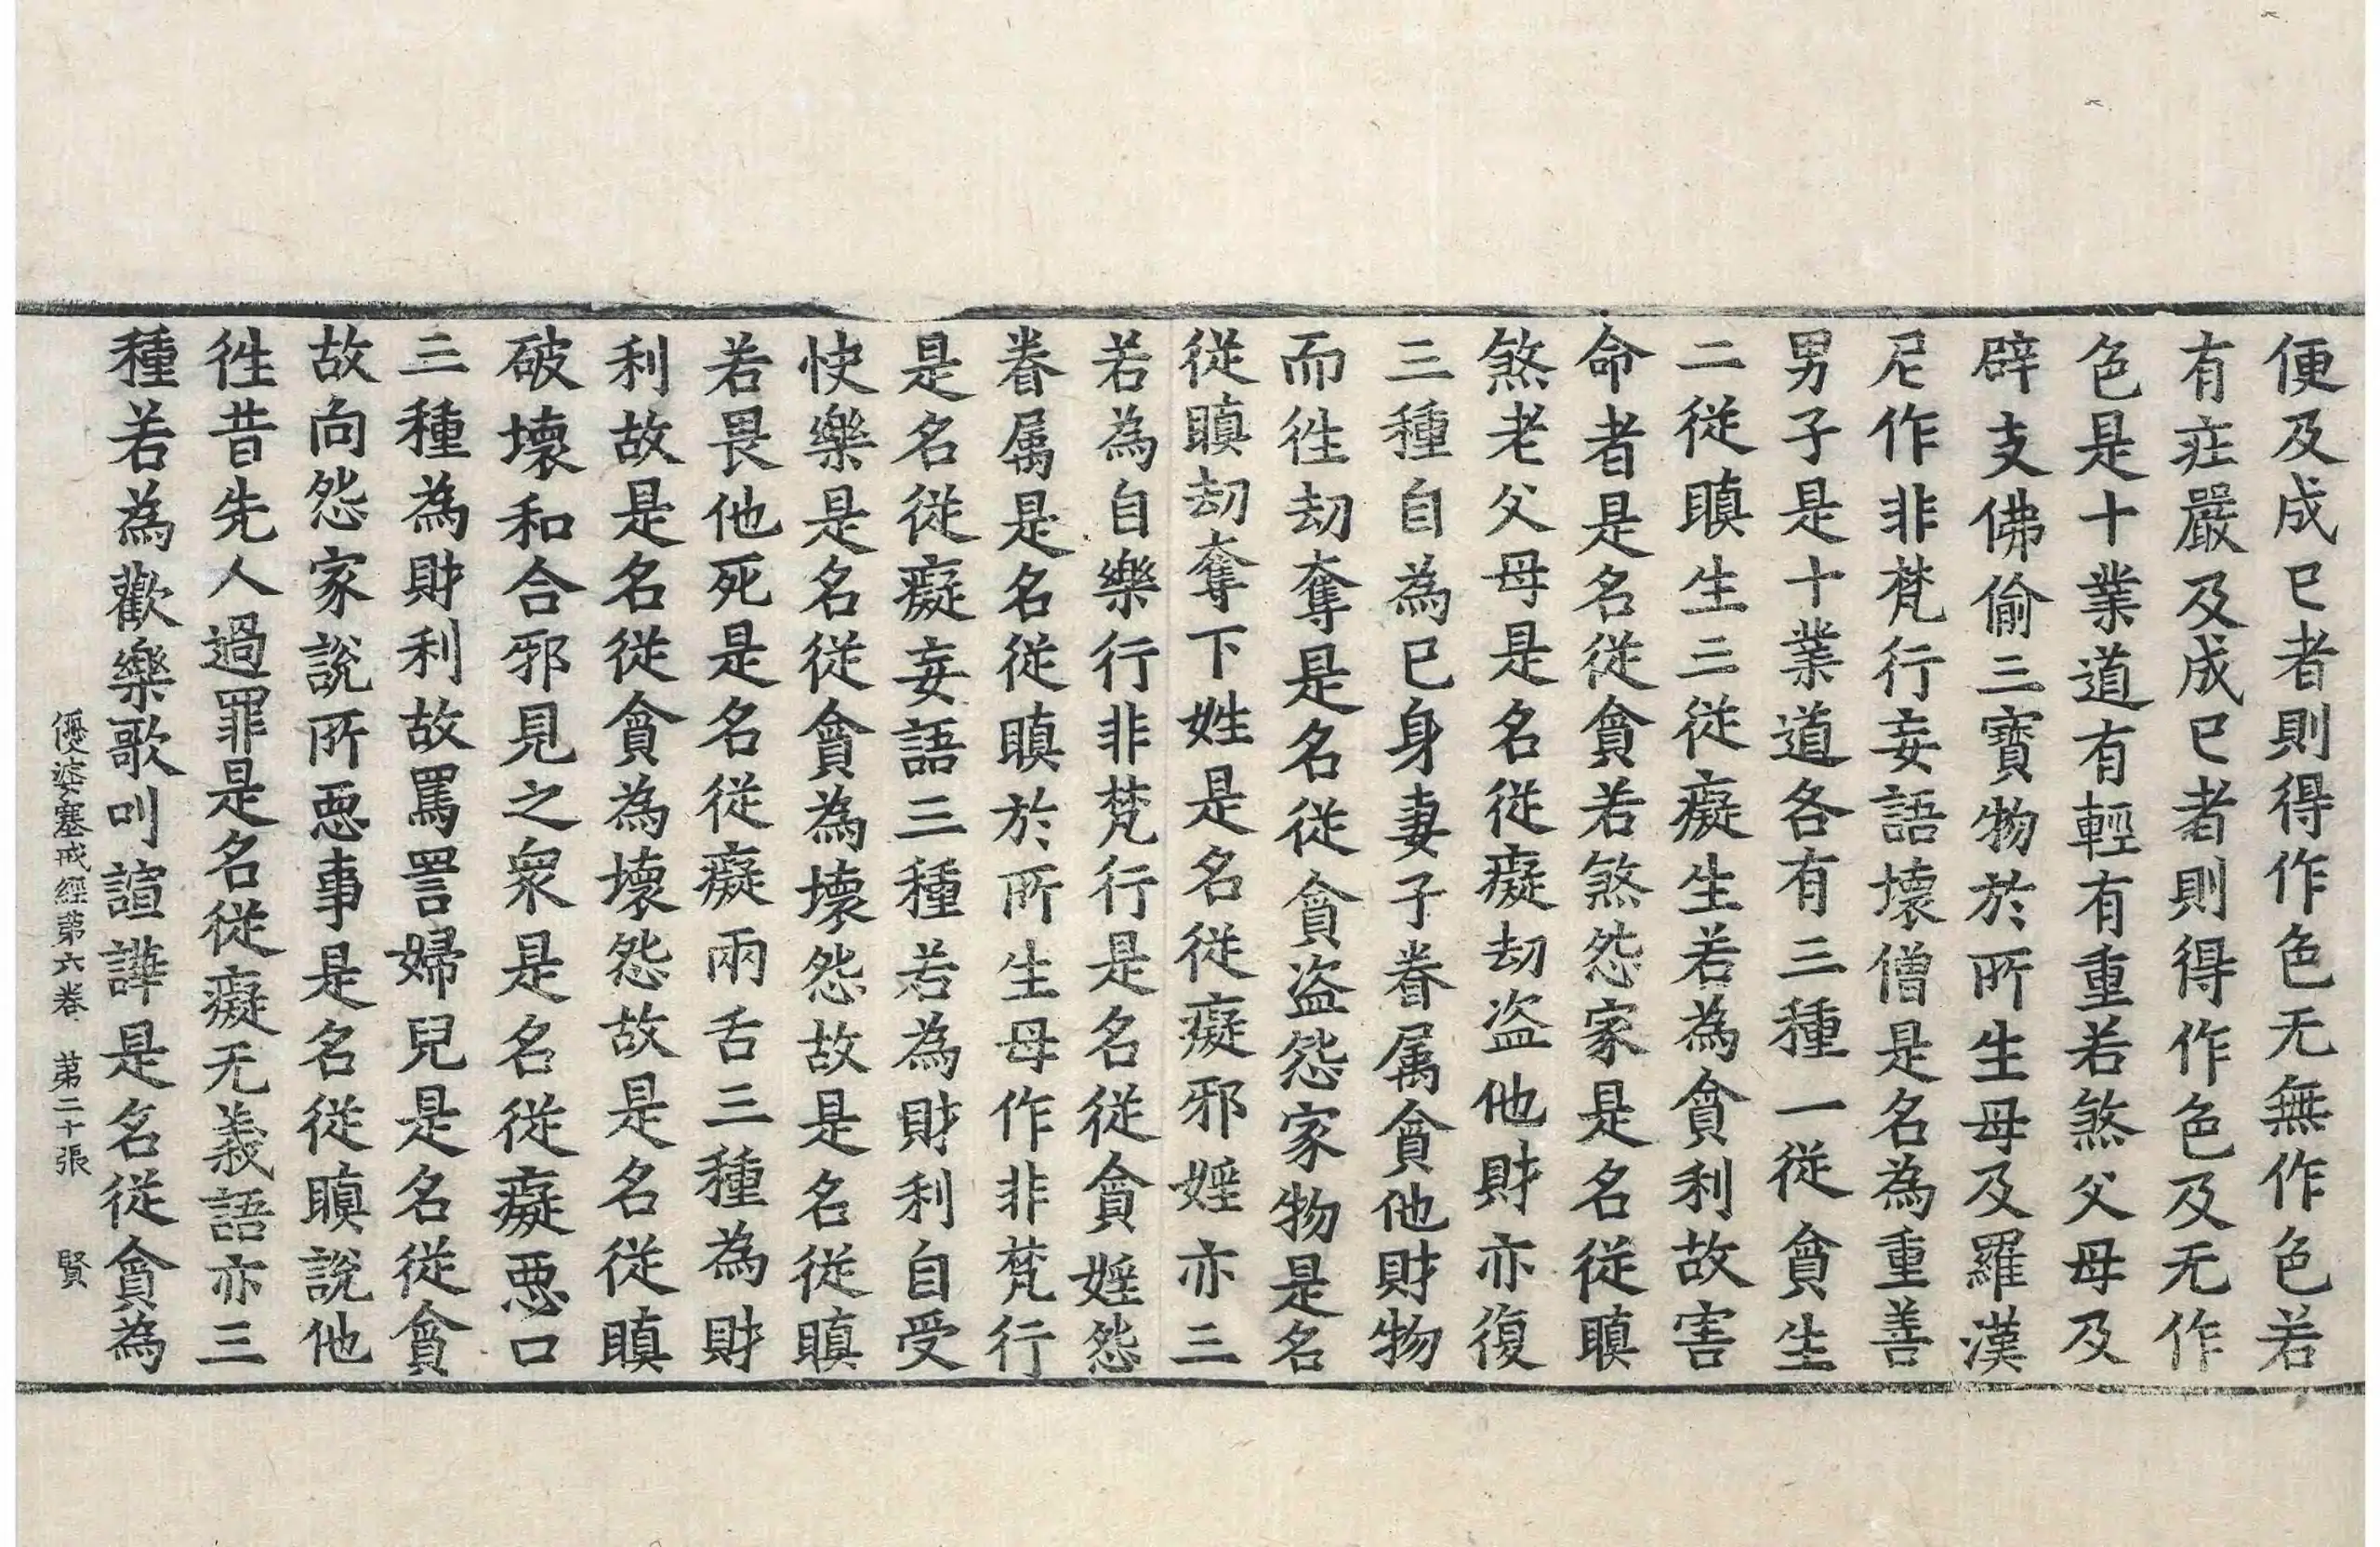 便及成已者則得作色无無作色若
有疘嚴及成已者則得作色及无作
色是十業道有輕有重若煞父母及
辟支佛偷三寶物於所生母及羅漢
尼作非梵行妄語壞僧是名為重善
男子是十業道各有三種一從貪生
二從瞋生三從癡生若為貪利故害
命者是名從貪若煞怨家是名從瞋
煞老父母是名從癡劫盜他財亦復
三種自為已身妻子眷属貪他財物
而徃劫奪是名從貪盜怨家物是名
從瞋劫奪下姓是名從癡邪婬亦三
若為自樂行非梵行是名從貪婬怨
眷属是名從瞋於所生母作非梵行
是名從癡妄語三種若為財利自受
快樂是名從貪為壞怨故是名從瞋
若畏他死是名從癡兩舌三種為財
利故是名從貪為壞怨故是名從瞋
破壞和合邪見之衆是名從癡惡口
三種為財利故罵詈婦兒是名從貪
故向怨家說所惡事是名從瞋說他
徃昔先人過罪是名從癡无義語亦三
種若為歡樂歌叫諠譁是名從貪為
優婆塞戒經第六卷 第二十張 賢